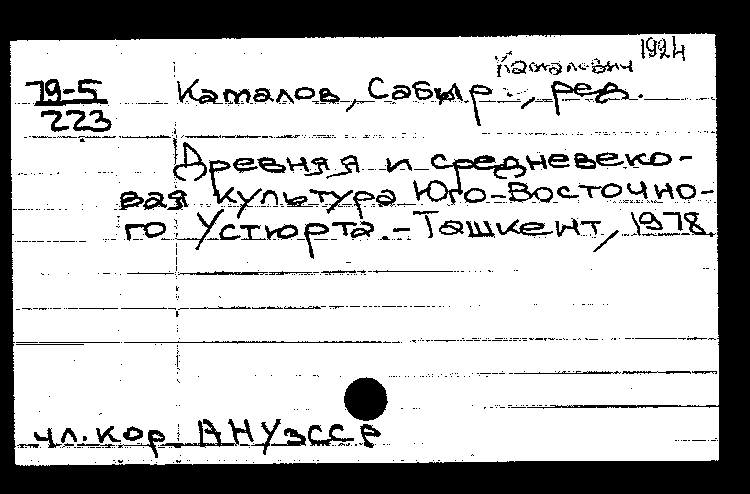 1924
Камалович
79-5
223
Камалов, Сабыр ., ред.
Древняя и средневеко-
вая культура Юго-Восточно-
го Устюрта.-Ташкент, 1978.
чл.кор АНУзССР